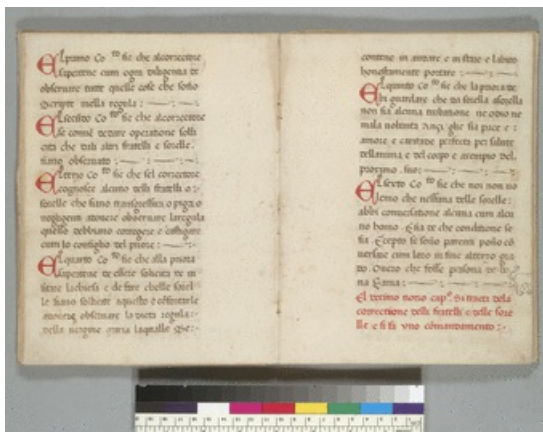 El primo Co to sie che alcorrectore
sapertene cum ogni diligentia de
observare tutte quelle cose che sono
scripte nella regula :
El secondo Co to sie che alcorrectore
se convene dare operatione solli
cita che dali altri fratelli e sorelle
siano observato :
El terzo Co to sie che sel correctore
cognosce alcuno delli fratelli o
sorelle che siano transgressori o pigri o
negligenti adovere observare laregula
quello debbiano corregere e castigare
cum lo consiglio del priore :
El quarto Co to sie che alla priora
sapertene de essere solicita de
la chiesa e de fare che le sorel
le siano sollicite aquesto e confortarle
observare la dicta regula
della vergine maria laquale
contene in andare e in stare e labito
honestamente portare :
El quinto Co to sie che la priora de
bi guardare che da sorella asorella
non sia alcuna turbatione ne odio ne
mala volunta Anzi ghe sia pace e
amore e caritade perfecta per salute
dellanima e del corpo e del
proximo suo :
El sexto Co to sie che noi non vo
lemo che nessuna delle sorelle
abbi conversatione alcuna cum alcu
no homo E sia de che conditione se
sia Excepto se sono parenti
cum loro in fine
do Overo che fosse persona de bo
na Fama :
El decimo nono capo Si tracta dela
correctione delli fratelli e delle sore
lle e si fa uno comandamento :